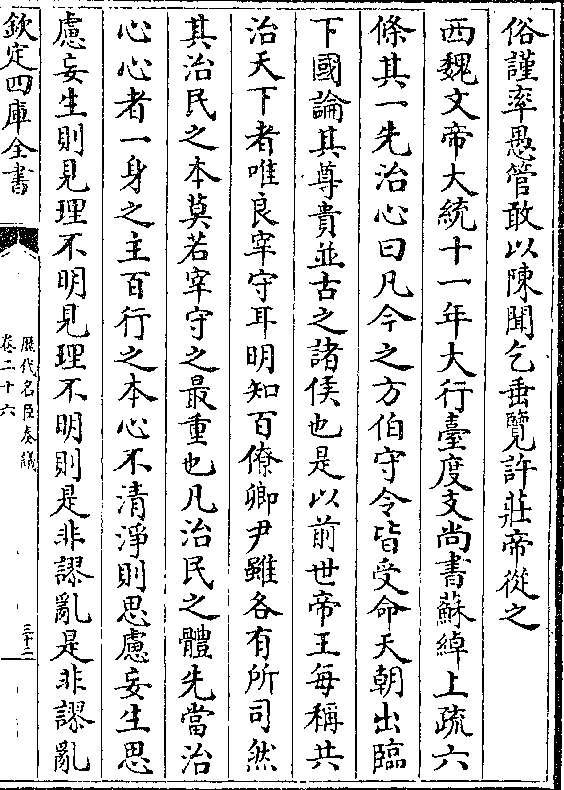 俗謹率愚管敢以陳聞乞垂覽許莊帝從之
西魏文帝大統十一年大行臺度支尚書蘇綽上疏六
條其一先治心曰凡今之方伯守令皆受命天朝出臨
下國論其尊貴並古之諸侯也是以前世帝王每稱共
治天下者唯良宰守耳明知百僚卿尹雖各有所司然
其治民之本莫若宰守之最重也凡治民之體先當治
心心者一身之主百行之本心不清淨則思慮妄生思
慮妄生則見理不明見理不明則是非謬亂是非謬亂
欽定四庫全書
歷代名臣奏議
卷二十六
三十二